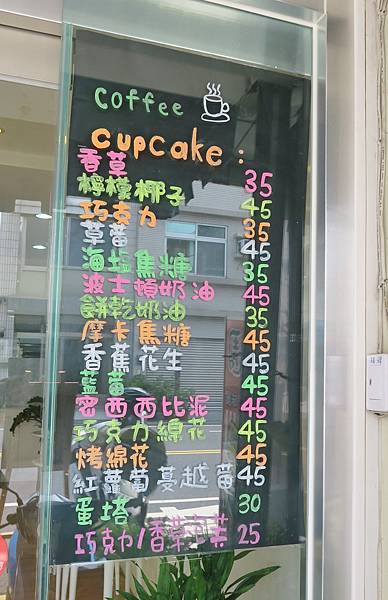 coffee
cupcake:
香草 35
檸檬椰子 45
巧克力 35
草莓 45
海塩焦糖 35
波士頓奶油 45
餅乾奶油 35
摩卡焦糖 45
香蕉花生 45
藍莓 45
密西西比泥 45
巧克力線花 45
烤綿花 45
紅蘿蔔蔓越莓 45
蛋塔 30
巧克力/香草泡芙 25